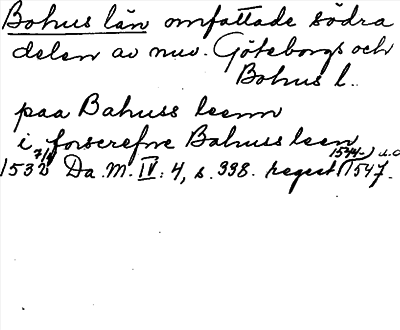 Bohus län omfattade södra
delen av nuv. Göteborgs och
Bohus l.
paa Bahuss leenn
i forscrefne Bahuss leen
1532 7/9 Da. M. IV: 4, s. 998. regest (1547.
1544-) d.o